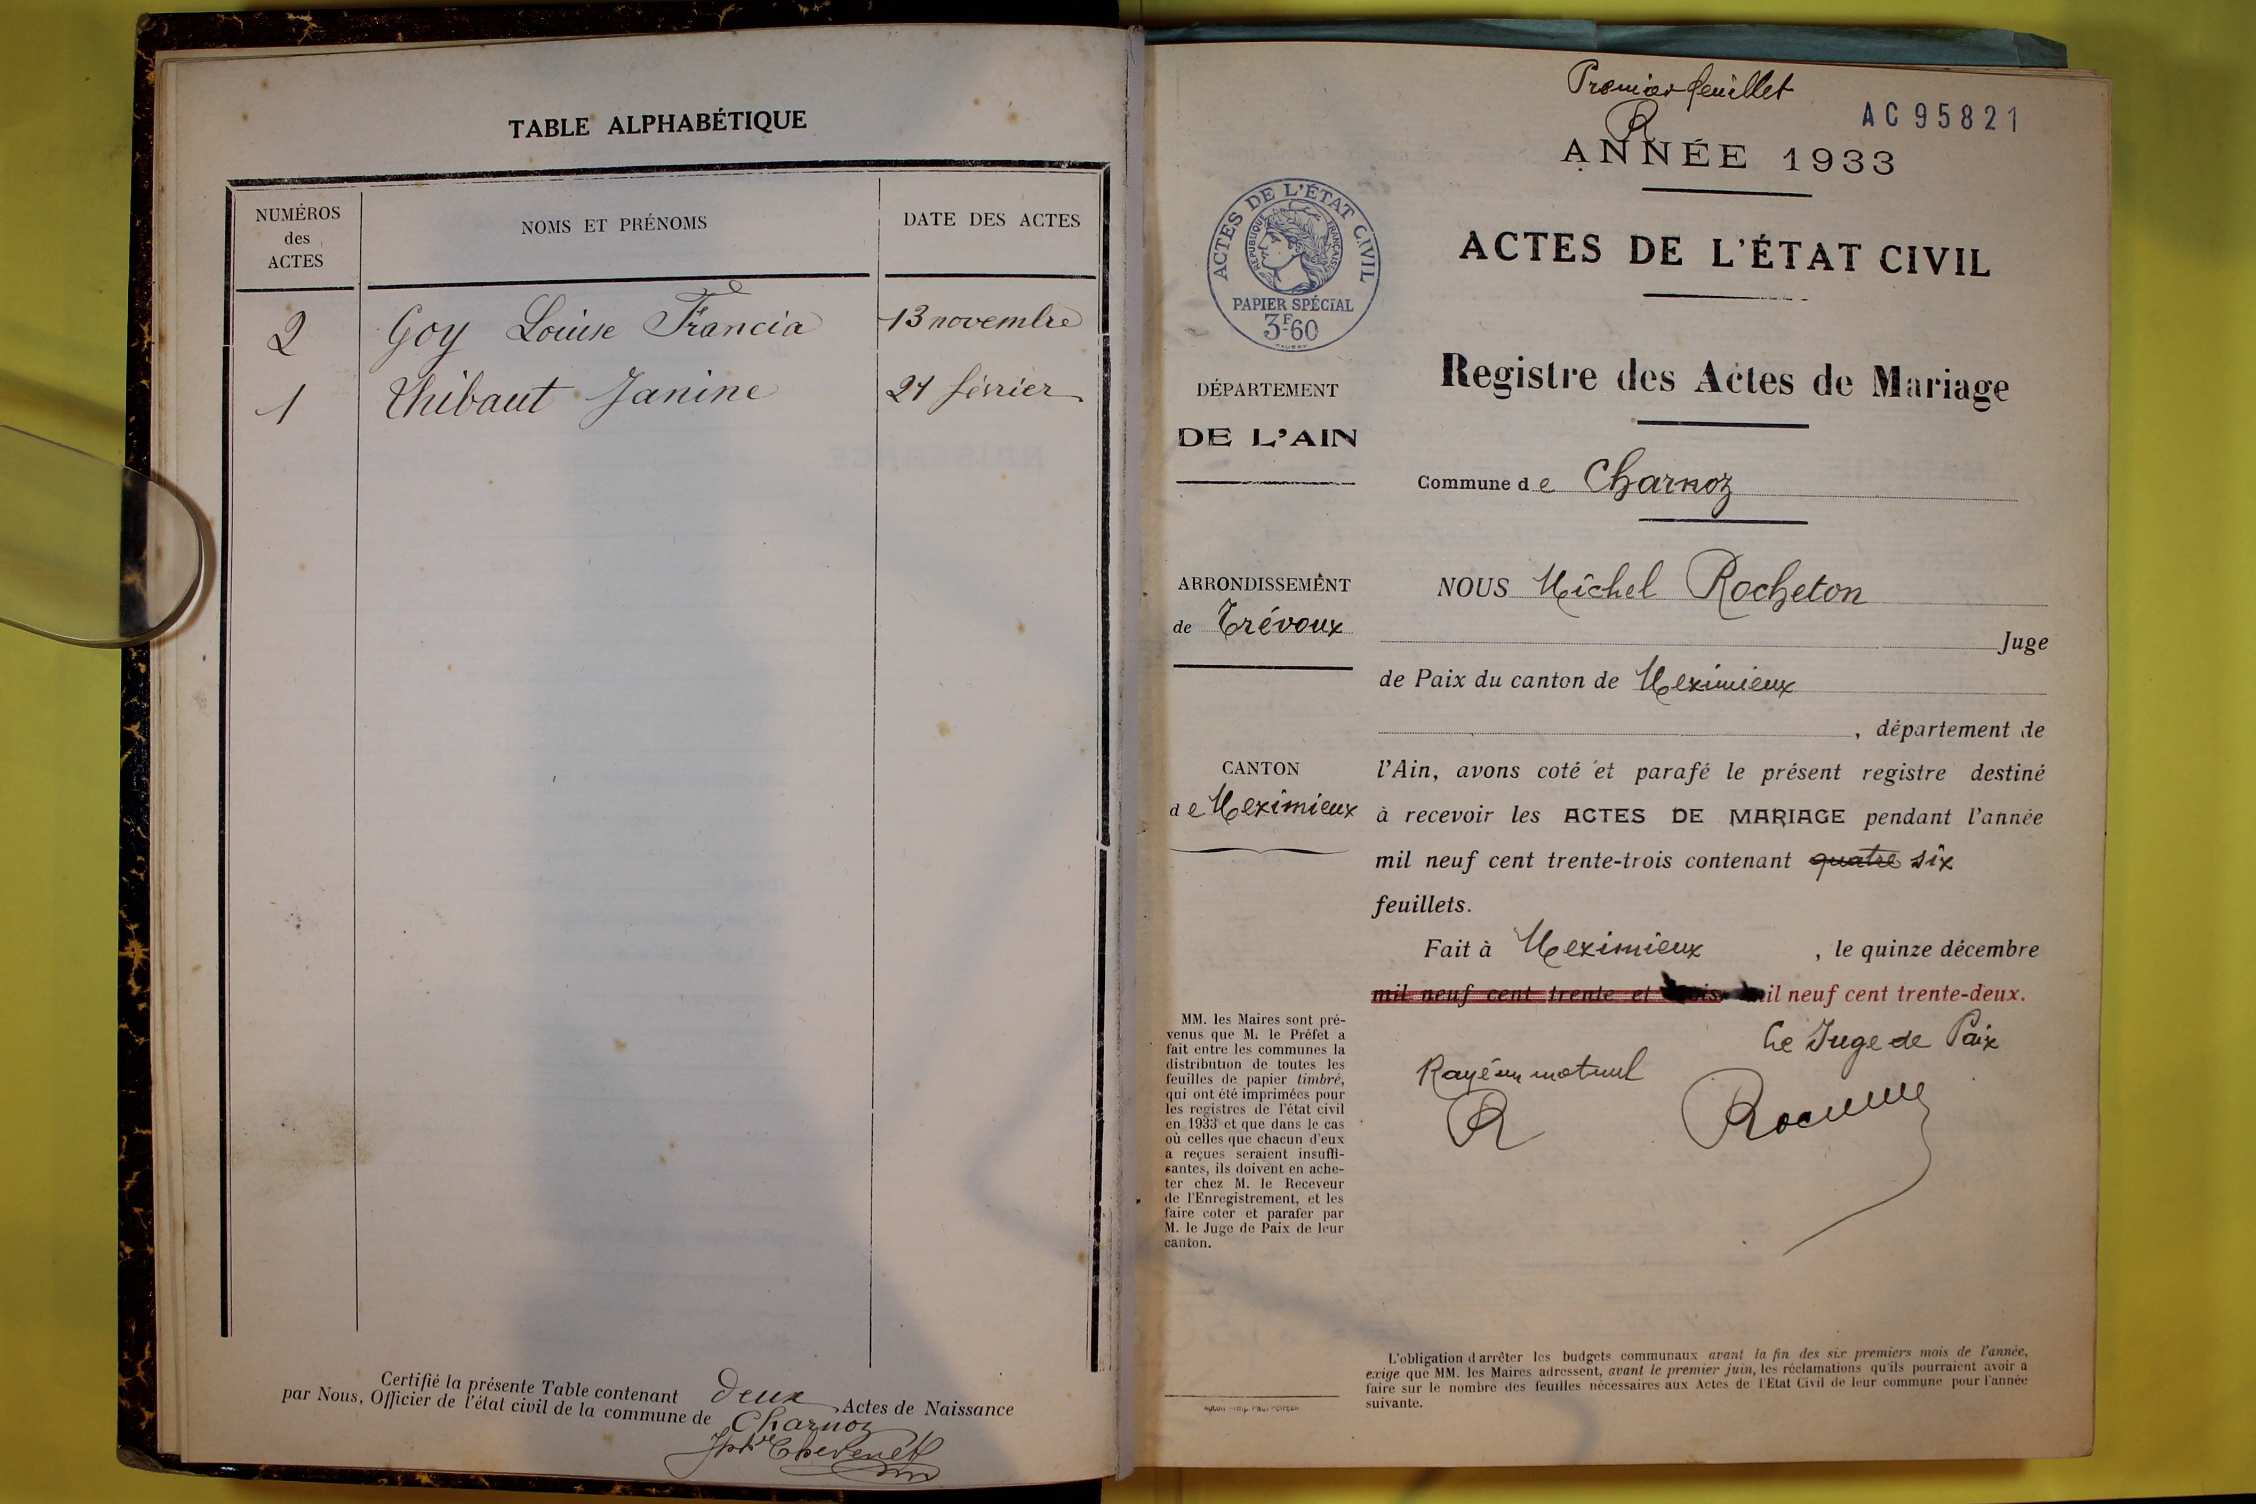 TABLE ALPHABÉTIQUE
NUMÉROS
des
ACTES
NOMS ET PRÉNOMS
DATE DES ACTES
2 Goy Louise Francia 13 novembre
1 Thibaut Janine 21 février
Certifié la présente Table contenant deux Actes de Naissance
par Nous, Officier de l'état civil de la commune de Charnoz
Chevenet
Premier feuillet
R
AC 95821
ANNÉE 1933
ACTES DE L'ÉTAT CIVIL
RÉPUBLIQUE FRANÇAISE
PAPIER SPÉCIAL
3F60
ACTES DE L'ÉTAT CIVIL
Registre des Actes de Mariage
Commune de Charnoz
DÉPARTEMENT
DE L'AIN
ARRONDISSEMENT
de Trévoux
CANTON
de Meximieux
MM. les Maires sont pré-
venus que M. le Préfet a
fait entre les communes la
distribution de toutes les
feuilles de papier timbré,
qui ont été imprimées pour
les registres de l'état civil
en 1933 et que dans le cas
où celles que chacun d'eux
a reçues seraient insuffi-
santes, ils doivent en ache-
ter chez M. le Receveur
de l'Enregistrement, et les
faire coter et parafer par
M. le Juge de Paix de leur
canton.
NOUS Michel Rocheton
Juge
de Paix du canton de Meximieux
, département de
l'Ain, avons coté et parafé le présent registre destiné
à recevoir les ACTES DE MARIAGE pendant l'année
mil neuf cent trente-trois contenant quatre six
feuillets.
Fait à Meximieux , le quinze décembre
mil neuf cent trente et mil neuf cent trente-deux.
Le Juge de Paix
Rayé un mot nul
R
L'obligation d'arrêter les budgets communaux avant la fin des six premiers mois de l'année,
exige que MM. les Maires adressent, avant le premier juin, les réclamations qu'ils pourraient avoir à
faire sur le nombre des feuilles nécessaires aux Actes de l'Etat Civil de leur commune pour l'année
suivante.